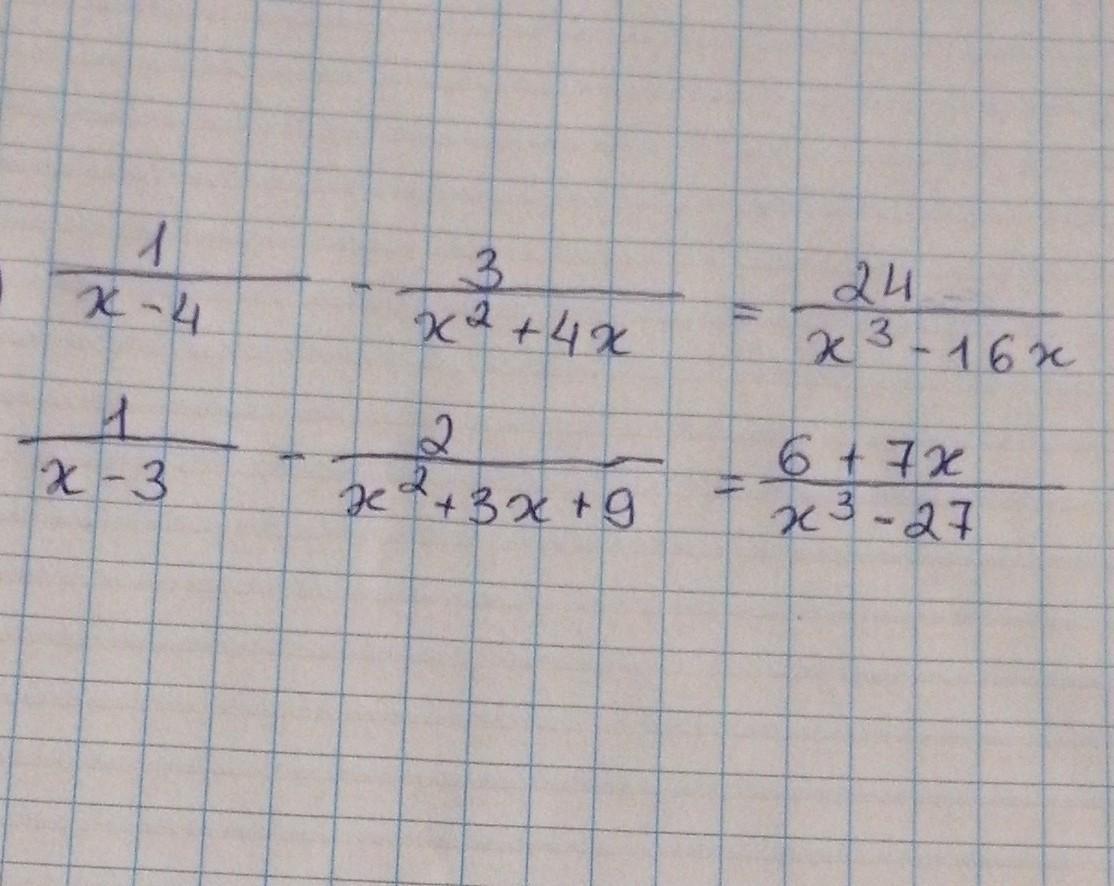 1/(x-4) - 3/(x²+4x) = 24/(x³-16x)
1/(x-3) - 2/(x²+3x+9) = (6+7x)/(x³-27)